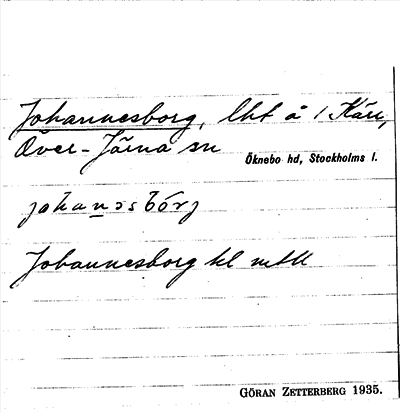 Johannesborg, lht å 1 Kåre,
Över-Järna sn
Öknebo hd, Stockholms l.
johanəsbórj
Johannesborg hl mtll
GÖRAN ZETTERBERG 1935.